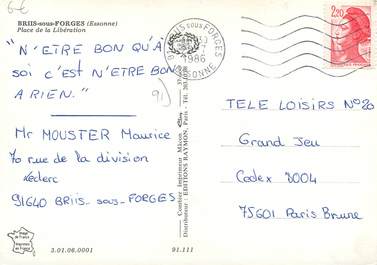 6€
BRIIS-sous-FORGES (Essonne)
Place de la Libération
"N'ETRE BON QU'A
SOI C'EST N'ETRE BON
A RIEN."
91)
Mr MOUSTER Maurice
70 rue de la division
Leclerc
91640 BRIIS-sous-FORGES
3.01.06.0001
91.111
Combier Imprimeur Mâcon
Distributeur : EDITIONS RAYMON, Paris - Tél.
BRIIS SOUS FORGES
1986
ESSONNE
2,20
TELE LOISIRS N°20
Grand Jeu
Codex 3004
75601 Paris Brune